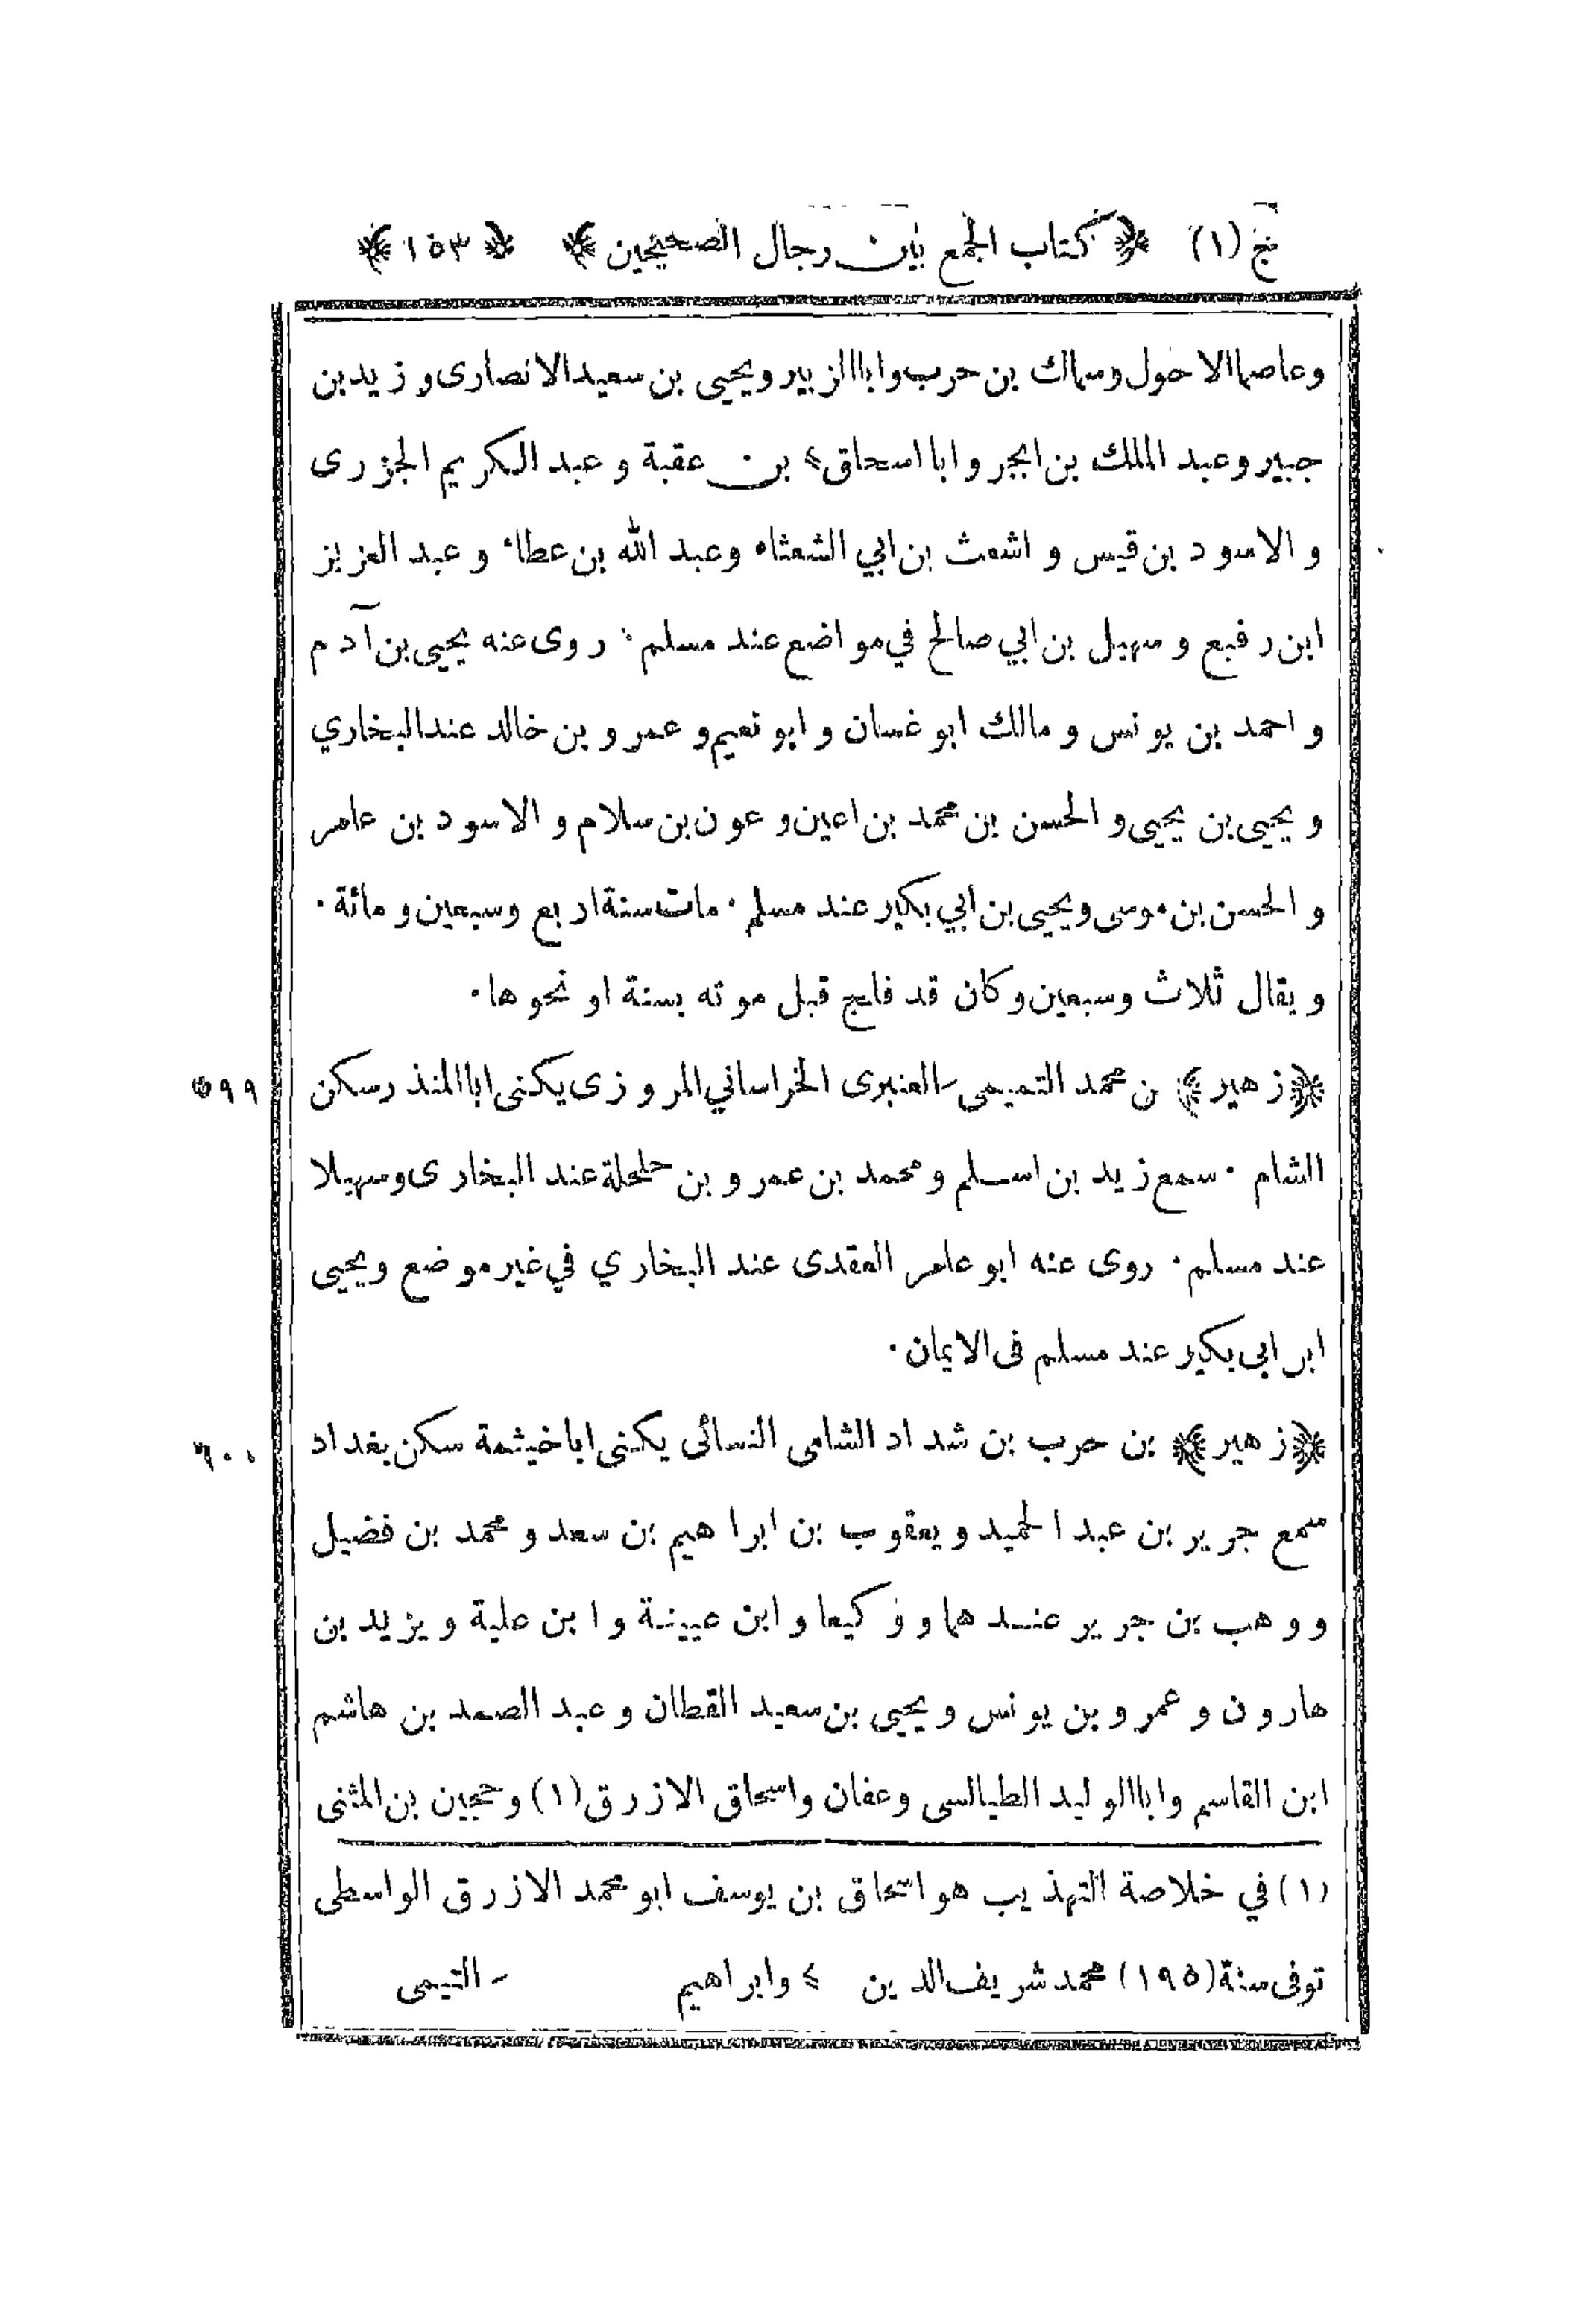 ج (١) ﴿ كتاب الجمع بين رجال الصحيحين ﴾ ﴿ ١٥٣ ﴾
وعاصما الاحول وسماك بن حرب وابا الزبير ويحيى بن سعيد الانصارى وزيد بن
جبير وعبد الملك بن ابجر وابا اسحاق بن عقبة وعبد الكريم الجزرى
والاسود بن قيس واشعث بن ابي الشعثاء وعبد الله بن عطاء وعبد العزيز
ابن رفيع وسهيل بن ابي صالح في مواضع عند مسلم. روى عنه يحيى بن آدم
واحمد بن يونس ومالك ابو غسان وابو نعيم وعمرو بن خالد عند البخاري
ويحيى بن يحيى والحسن بن محمد بن اعين وعون بن سلام والاسود بن عامر
والحسن بن موسى ويحيى بن ابي بكير عند مسلم. مات سنة اربع وسبعين ومائة.
ويقال ثلاث وسبعين وكان قد فلج قبل موته بسنة او نحوها.
﴿زهير﴾ بن محمد التميمى العنبرى الخراساني المروزى يكنى ابا المنذر سكن ٥٩٩
الشام. سمع زيد بن اسلم ومحمد بن عمرو بن حلحلة عند البخارى وسهيلا
عند مسلم. روى عنه ابو عامر العقدى عند البخاري في غير موضع ويحيى
ابن ابى بكير عند مسلم فى الايمان.
﴿زهير﴾ بن حرب بن شداد الشامى النسائى يكنى ابا خيثمة سكن بغداد ٦٠٠
سمع جرير بن عبد الحميد ويعقوب بن ابراهيم بن سعد ومحمد بن فضيل
ووهب بن جرير عندهما ووكيعا وابن عيينة وابن علية ويزيد بن
هارون وعمرو بن يونس ويحيى بن سعيد القطان وعبد الصمد بن هاشم
ابن القاسم وابا الوليد الطيالسى وعفان واسحاق الازرق (١) وحجين بن المثنى
(١) في خلاصة التهذيب هو اسحاق بن يوسف ابو محمد الازرق الواسطى
توفى سنة (١٩٥) محمد شريف الدين وابراهيم التيمى